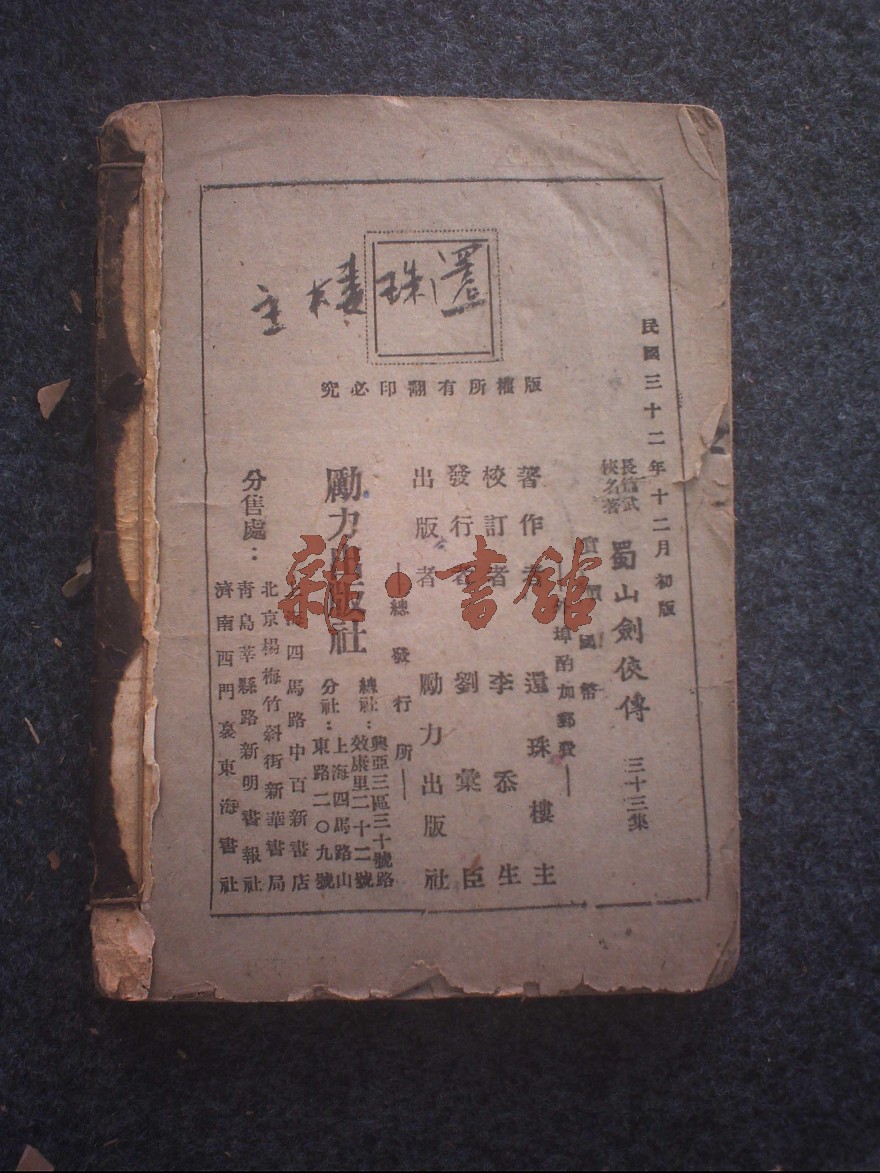 還珠樓主
版權所有翻印必究
民國三十二年十二月初版
長篇武
俠名著
蜀山劍俠傳 三十三集
實價國幣
外埠酌加郵費
著作者 還珠樓主
校訂者 李忝生
發行者 劉彙臣
出版者 勵力出版社
總發行所
勵力出版社
總社：興亞三區三十號路
效康里二十二號
分社：上海四馬路山
東路二〇九號
分售處：
上海四馬路中百新書店
北京楊梅竹斜街新華書局
青島莘縣路新明書報社
濟南西門裏東海書社
雜·書館